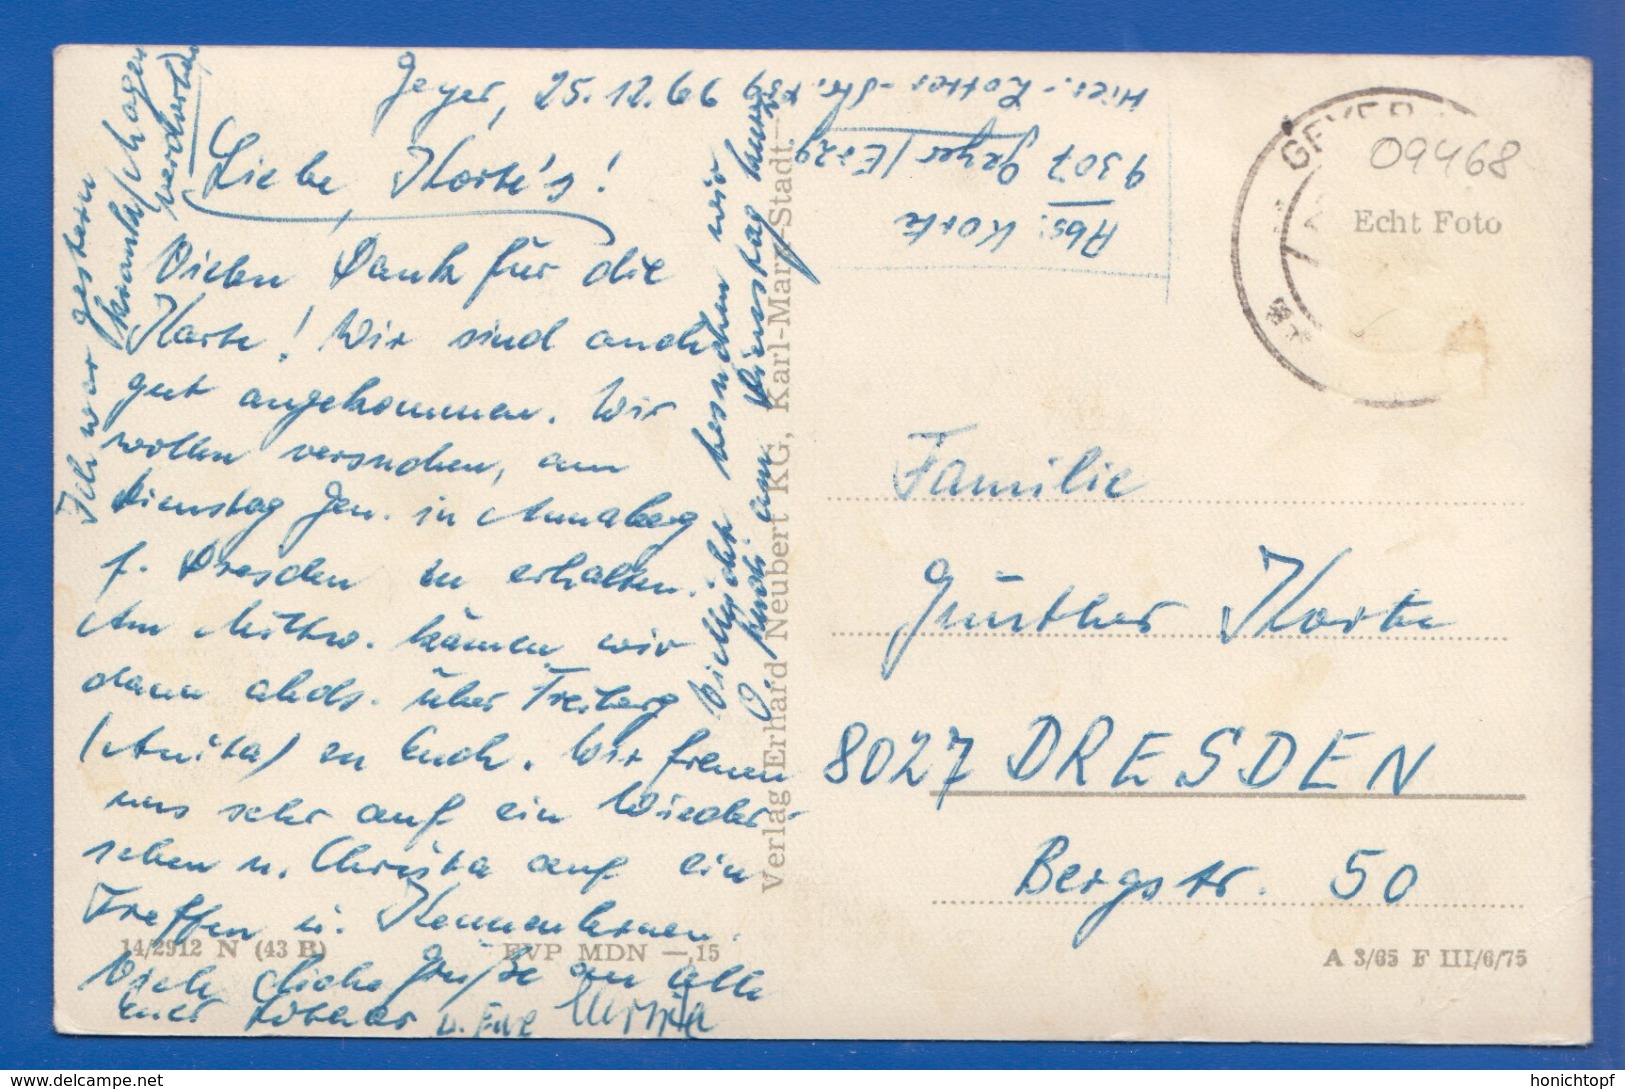 Geyer, 25.12.66
Liebe Korte's!
Vielen Dank für die
Karte! Wir sind auch
gut angekommen. Wir
wollen versuchen, am
Dienstag Gen. in Annaberg
f. Dresden zu erhalten.
Am Mittw. kämen wir
dann abds. über Freiberg
(Anita) zu Euch. Wir freuen
uns sehr auf ein Wieder-
sehen u. Christa auf ein
Treffen u. Kennenlernen.
Viele liebe Grüße an alle
euer u. Eure Christa
Ich war gestern
verdorben
Vielleicht besuchen wir
auch am Dienstag
Abs: Korte
9307 Geyer/Erzg
Hier.-Lotter-Str.
Verlag Erhard Neubert KG, Karl-Marx-Stadt
14/2912 N (43 B) EVP MDN —,15
GEYER
09468
Echt Foto
Familie
Günther Korte
8027 DRESDEN
Bergstr. 50
A 3/65 F III/6/75
honichtopf
delcampe.net